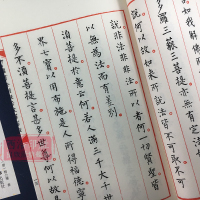 如我解佛
多羅三藐三菩提亦無有定
說何以故如來所說法皆不可取不可
說非法非非法所以者何一切賢聖皆
以無為法而有差別
須菩提於意云何若人滿三千大千世
界七寶以用布施是人所得福德寧為
多不須菩提言甚多世尊何以故是